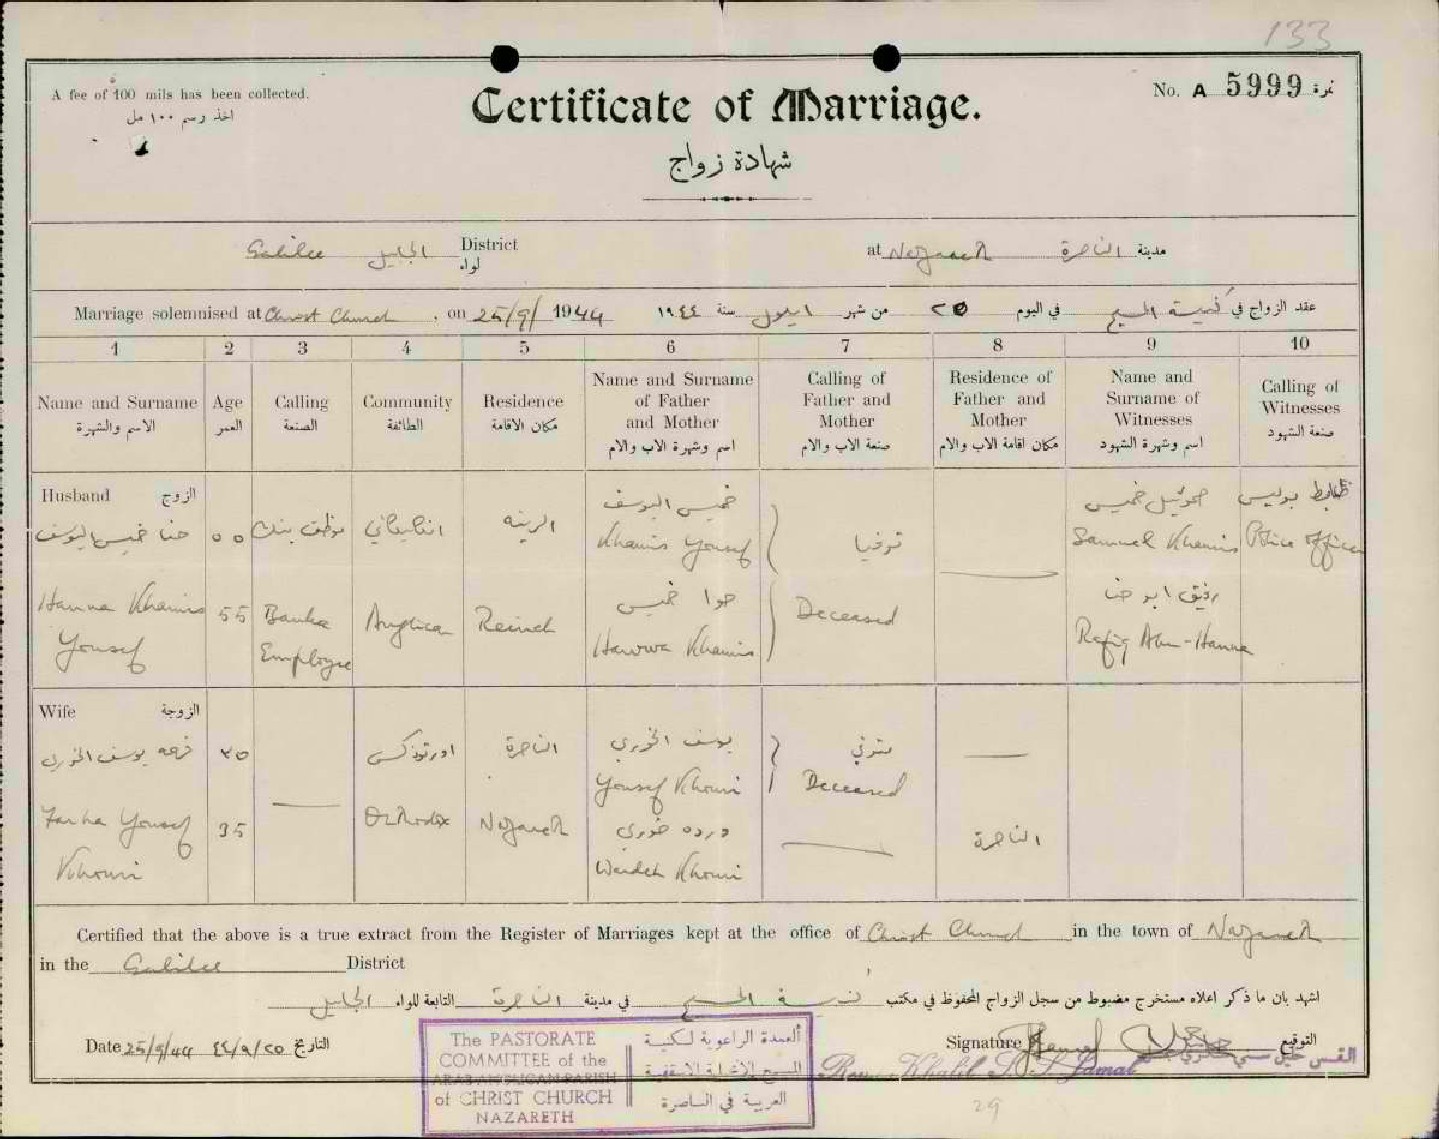 133
A fee of 100 mils has been collected.
اخذ رسم ١٠٠ مل
Certificate of Marriage.
شهادة زواج
No. A 5999 نمرة
Galilee الجليل District لواء
at Nazareth الناصرة مدينة
Marriage solemnised at Christ Church, on 25/9/ 1944
عقد الزواج في كنيسة المسيح في اليوم ٢٥ من شهر ايلول سنة ١٩٤٤
1 2 3 4 5 6 7 8 9 10
Name and Surname
الاسم والشهرة
Age
العمر
Calling
الصنعة
Community
الطائفة
Residence
مكان الاقامة
Name and Surname
of Father
and Mother
اسم وشهرة الاب والام
Calling of
Father and
Mother
صنعة الاب والام
Residence of
Father and
Mother
مكان اقامة الاب والام
Name and
Surname of
Witnesses
اسم وشهرة الشهود
Calling of
Witnesses
صنعة الشهود
Husband الزوج
حنا خميس اليوسف
Hanna Khamis
Yousef
٥٥
55
موظف بنك
Banks
Employee
انكليكاني
Anglican
الرينه
Reineh
خميس اليوسف
Khamis Yousef
حوا خميس
Hawwa Khamis
توفيا
Deceased
صموئيل خميس
Samuel Khamis
رفيق ابو حنا
Rafiq Abu-Hanna
ضابط بوليس
Police Officer
Wife الزوجة
فرحه يوسف الخوري
Farha Yousef
Khouri
٣٥
35
اورثوذكس
Orthodox
الناصرة
Nazareth
يوسف الخوري
Yousef Khouri
ورده خوري
Wardeh Khouri
متوفي
Deceased
الناصرة
Certified that the above is a true extract from the Register of Marriages kept at the office of Christ Church in the town of Nazareth
in the Galilee District
اشهد بان ما ذكر اعلاه مستخرج مضبوط من سجل الزواج المحفوظ في مكتب كنيسة المسيح في مدينة الناصرة التابعة للواء الجليل
Date 25/9/44 ٤٤/٩/٢٥ التاريخ
Signature التوقيع
Rev. Khalil S. Jamal
القس خليل
The PASTORATE
COMMITTEE of the
ARAB ANGLICAN PARISH
of CHRIST CHURCH
NAZARETH
العمدة الراعوية لكنيسة
المسيح الانجيلية الاسقفية
العربية في الناصرة
29